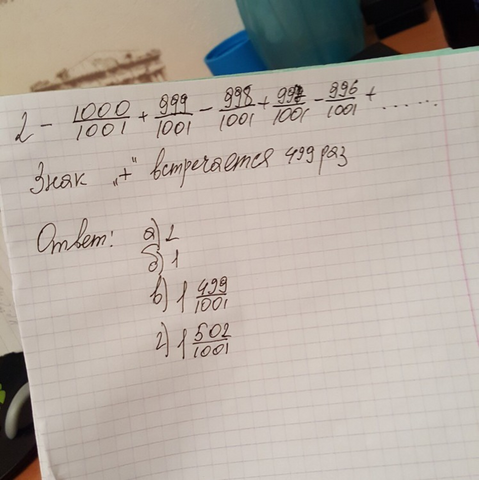 2 - 1000/1001 + 999/1001 - 998/1001 + 997/1001 - 996/1001 + ......
Знак „+“ встречается 499 раз
Ответ: а) 2
б) 1
в) 1 499/1001
г) 1 502/1001